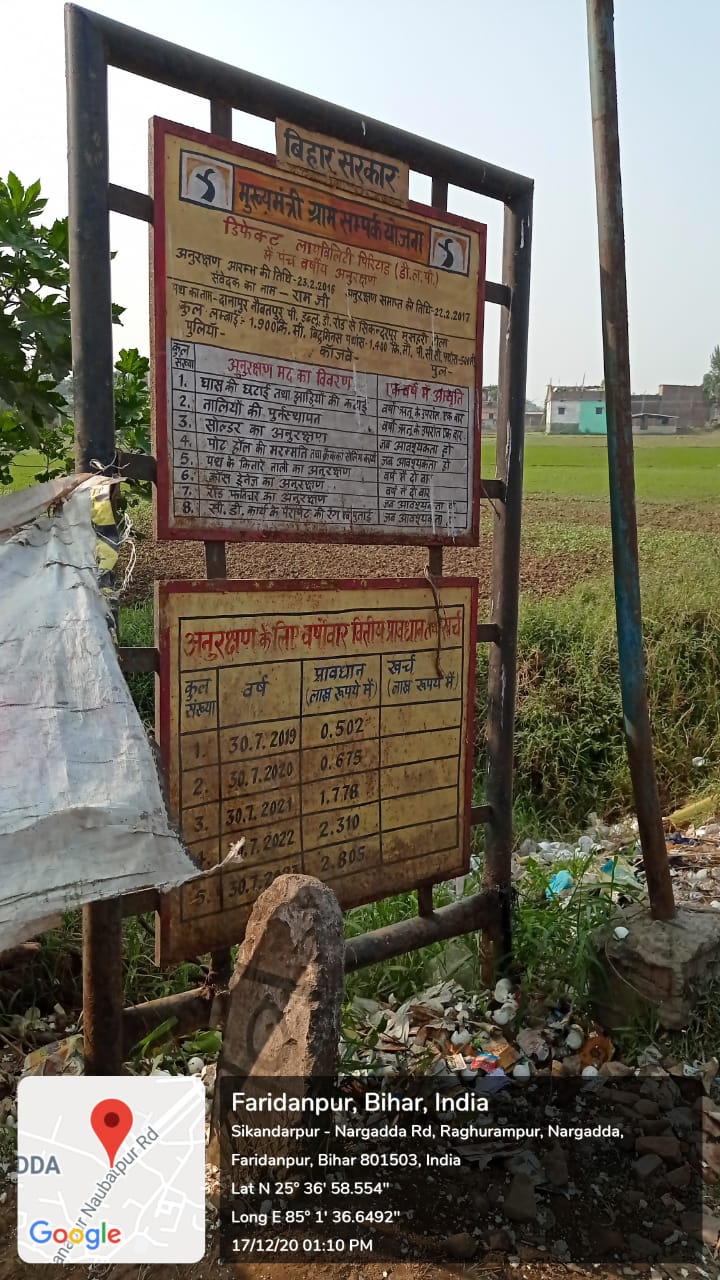 बिहार सरकार
मुख्यमंत्री ग्राम सम्पर्क योजना
डिफेक्ट लायबिलिटी पिरियड (डी.ल.पी.)
में पंच वर्षीय अनुरक्षण
अनुरक्षण आरम्भ की तिथि-23.2.2016 अनुरक्षण समाप्त की तिथि-22.2.2017
संवेदक का नाम - राम जी
पथ का नाम- दानापुर नौबतपुर पी. डब्लू. डी. रोड से सिकन्दरपुर मुसहरी टोला
कुल लम्बाई:- 1.900कि.मी. बिटुमिनस पथांस-1.400 कि.मी. पी.सी.सी. पथांस-500मी
पुलिया- कॉजवे- पुल-
कुल संख्या अनुरक्षण मद का विवरण एक वर्ष में आवृति
1. घास की छटाई तथा झाड़ियों की कटाई वर्षा ऋतु के उपरांत एक बार
2. नालियों की पुर्नस्थापन वर्षा ऋतु के उपरांत एक बार
3. सोल्डर का अनुरक्षण जब आवश्यकता हो
4. पोट हॉल की मरम्मति तथा क्रेक का सीलिंग कार्य जब आवश्यकता हो
5. पथ के किनारे नाली का अनुरक्षण वर्ष में दो बार
6. क्रॉस ड्रेनेज का अनुरक्षण वर्ष में दो बार
7. रोड फर्निचर का अनुरक्षण जब आवश्यकता
8. सी. डी. कार्य के पैरापेट की रंग पुताई जब आवश्यकता
अनुरक्षण के लिए वर्षोवार वित्तीय प्रावधान तथा खर्च
कुल संख्या वर्ष प्रावधान (लाख रूपये में) खर्च (लाख रूपये में)
1. 30.7.2019 0.502
2. 30.7.2020 0.675
3. 30.7.2021 1.778
4. .7.2022 2.310
5. 30.7. 2.805
DDA
Naubatpur Rd
Google
Faridanpur, Bihar, India
Sikandarpur - Nargadda Rd, Raghurampur, Nargadda,
Faridanpur, Bihar 801503, India
Lat N 25° 36' 58.554"
Long E 85° 1' 36.6492"
17/12/20 01:10 PM